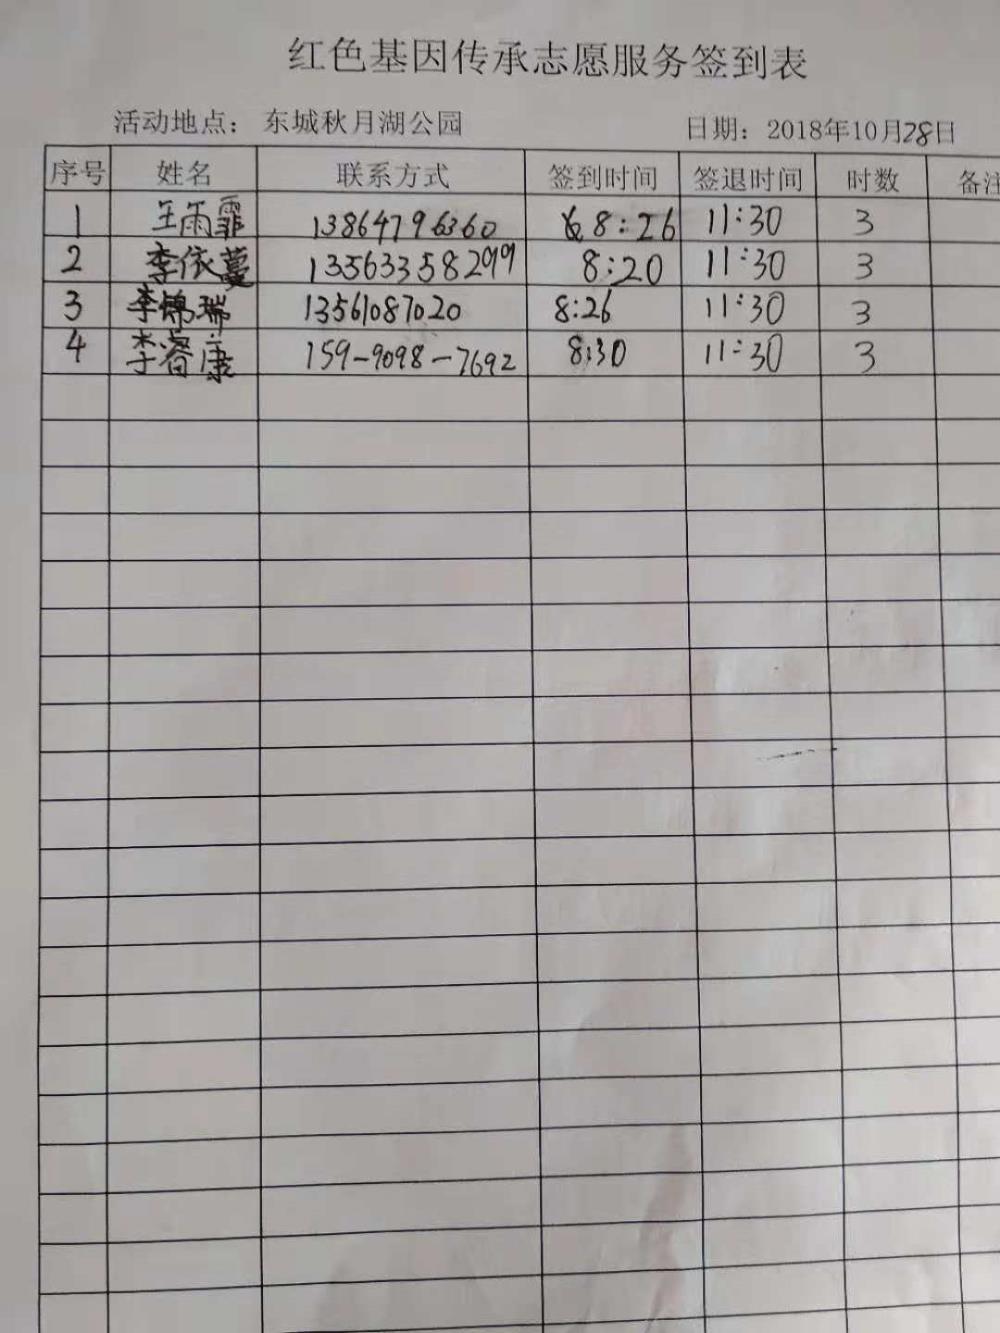 红色基因传承志愿服务签到表
活动地点：东城秋月湖公园 日期：2018年10月28日
序号 姓名 联系方式 签到时间 签退时间 时数 备注
1 王雨霏 13864796360 8:26 11:30 3
2 李依蔓 135633358299 8:20 11:30 3
3 李锦瑞 13561087020 8:26 11:30 3
4 李睿康 159-9098-7692 8:30 11:30 3